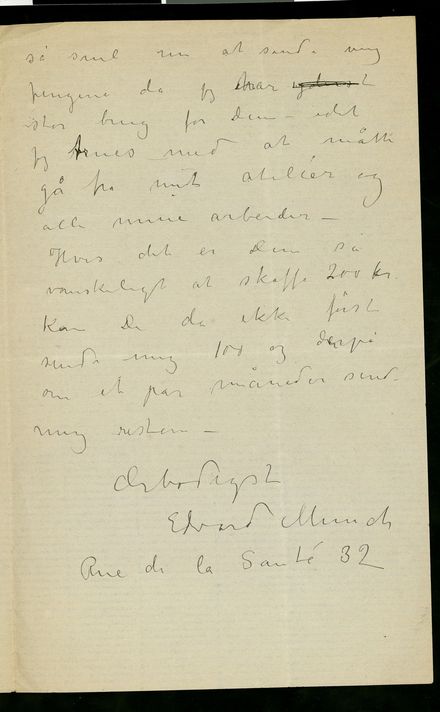 så snil nu at sende mig
pengene da jeg har yderst
stor brug for dem – idet
jeg trues med at måtte
gå fra mit ateliér og
alle mine arbeider –
Hvis det er Dem så
vanskeligt at skaffe 200 kr.
kan De da ikke först
sende mig 100 og derpå
om et par måneder send
mig resten –
Ærbödigst
Edvard Munch
Rue de la Santé 32